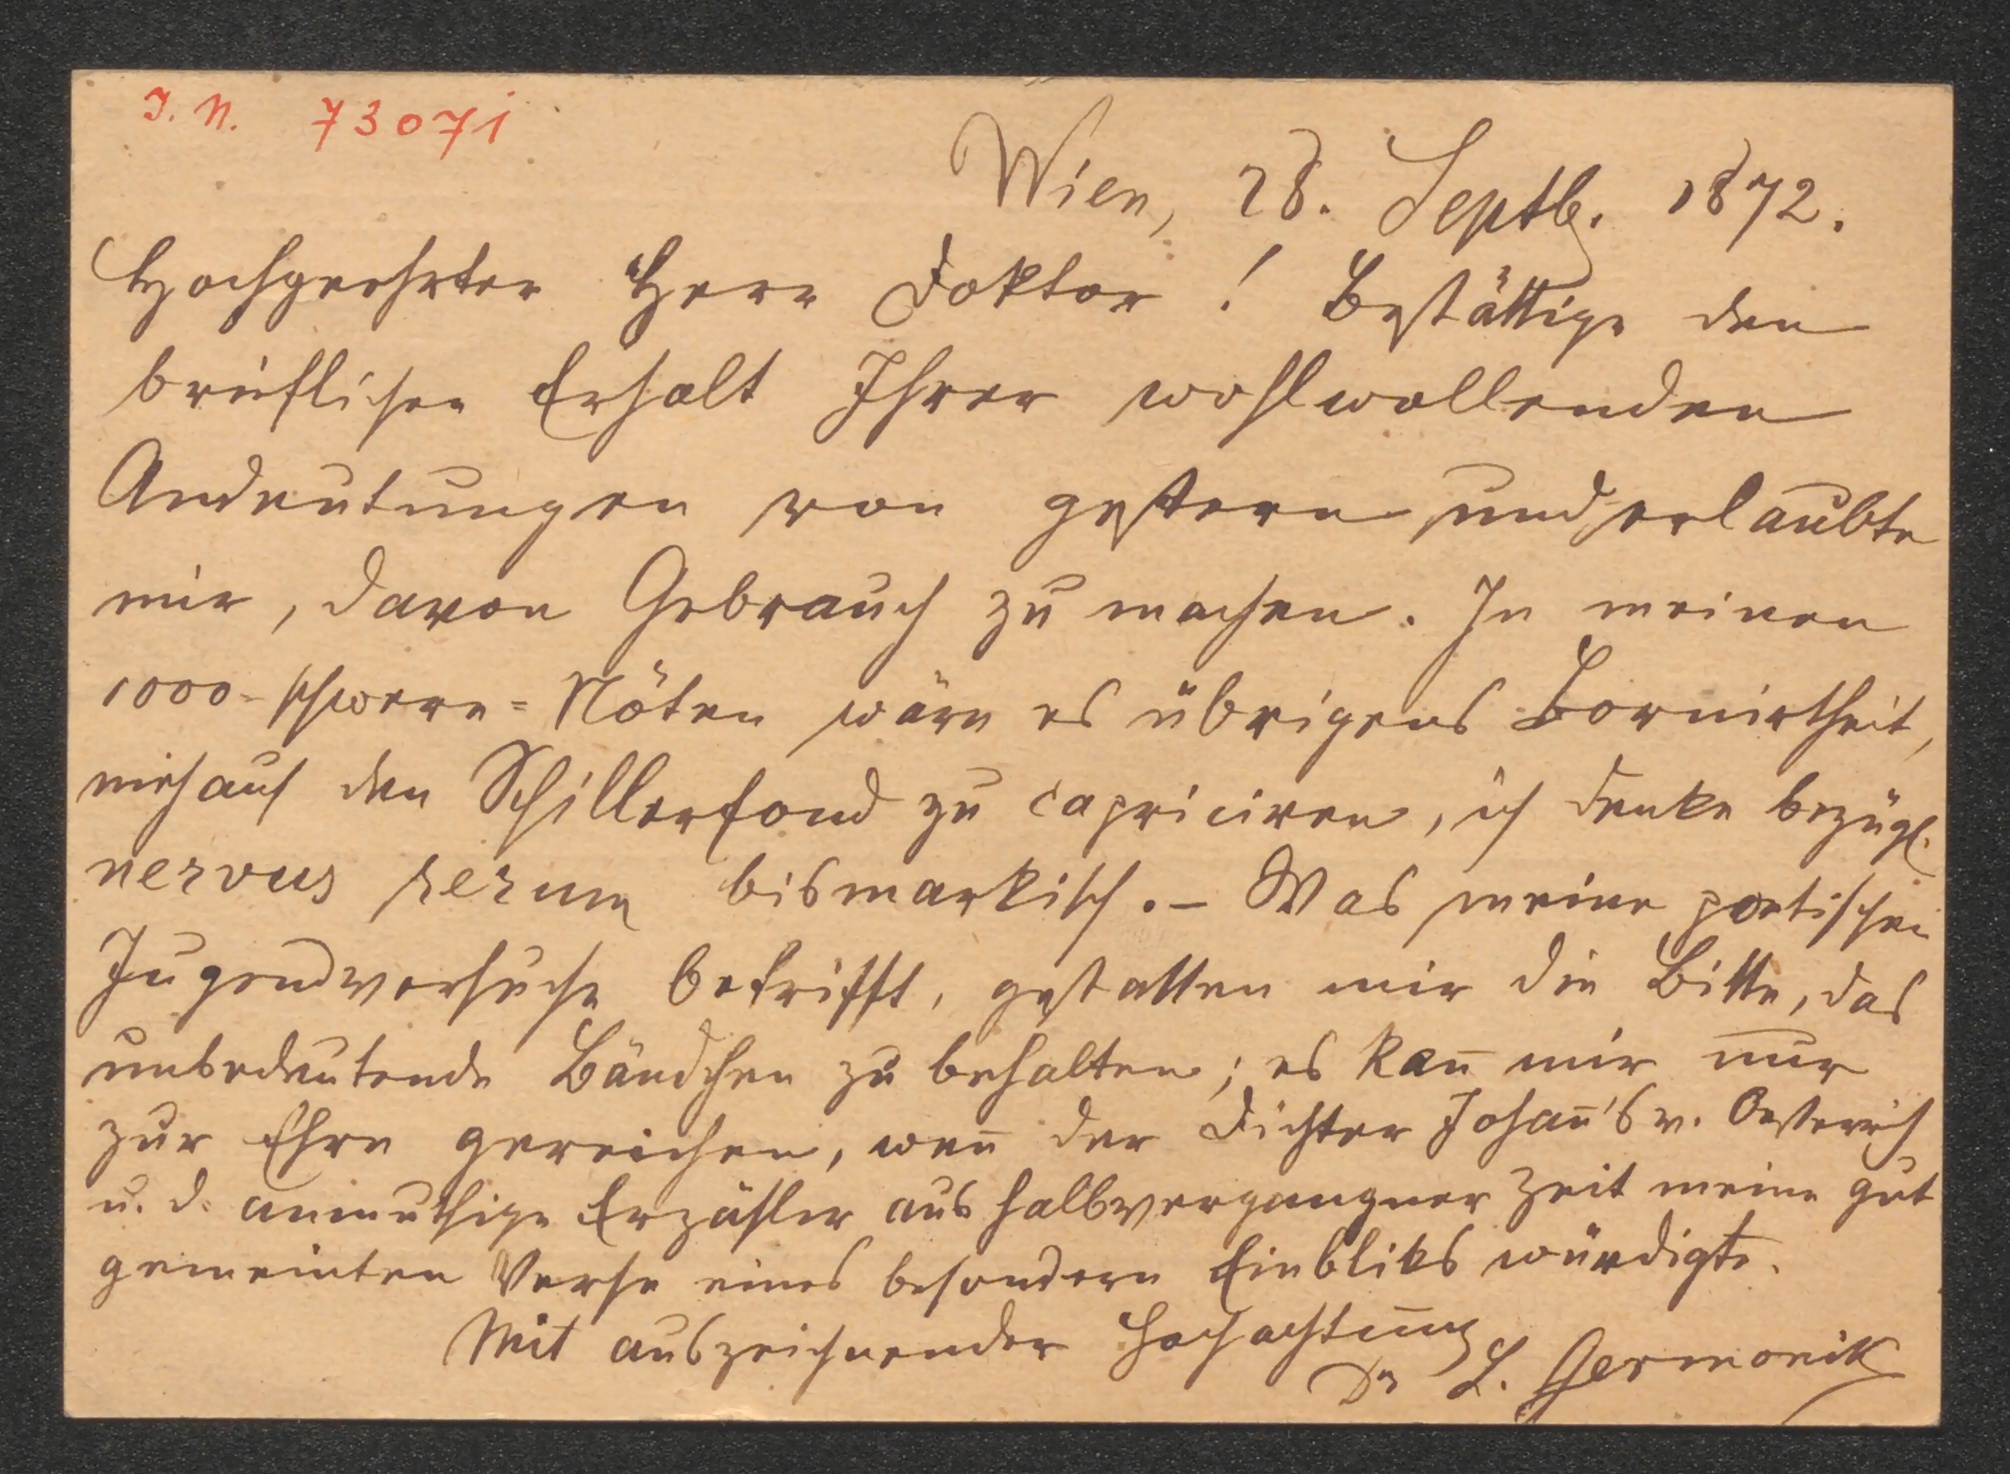 I. N. 73071
Wien, 28. Septb. 1872.
Hochgeehrter Herr Doktor! Bestättige den
brieflichen Erhalt Ihrer wohlwollenden
Andeutungen von gestern und erlaubte
mir, davon Gebrauch zu machen. In meinen
1000-schwere-Nöten wäre es übrigens Bornirtheit,
mich auf den Schillerfond zu capriciren, ich denke bezügl.
nervus rerum bismarkisch. – Was meine poetischen
Jugendversuche betrifft, gestatten mir die Bitte, das
unbedeutende Bändchen zu behalten; es kan̅ mir nur
zur Ehre gereichen, wen̅ der Dichter Johan̅'s v. Oesterreich
u. d. anmuthige Erzähler aus halbvergangner Zeit meine gut
gemeinten Verse eines besondern Einbliks würdigte.
Mit auszeichnender Hochachtung
Dr L. Germonik